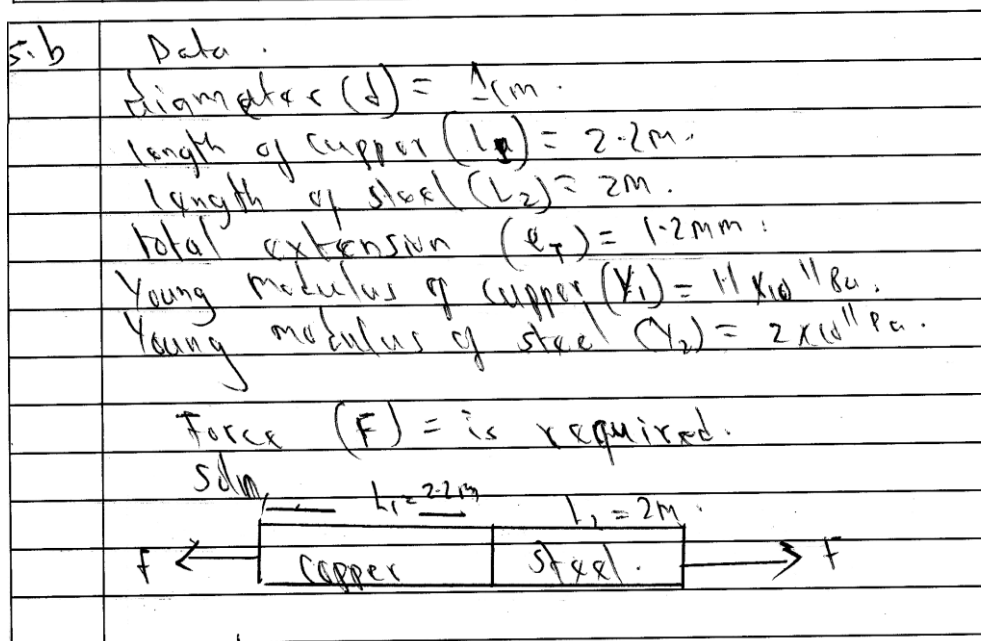 5.b Data.
diameter (d) = 1cm.
length of cupper (L1) = 2.2m.
length of steel (L2) = 2m.
total extension (eT) = 1.2mm.
Young modulus of cupper (Y1) = 1.1 x 10^11 Pa.
Young modulus of steel (Y2) = 2 x 10^11 Pa.
Force (F) = is required.
Soln
L1 = 2.2m L2 = 2m.
F copper steel. F